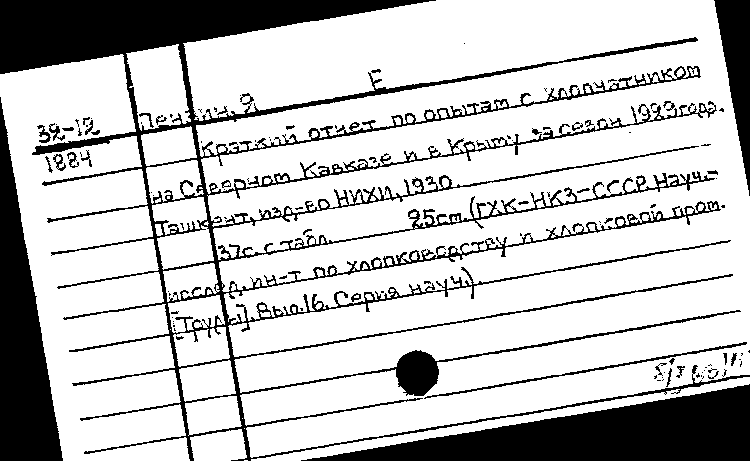 Е
32-12
1884
Пензин, Я
Краткий отчет по опытам с хлопчатником
на Северном Кавказе и в Крыму за сезон 1929 года.
Ташкент, изд-во НИХИ, 1930.
37с. с табл. 25см. (ГХК-НКЗ-СССР. Науч.-
исслед. ин-т по хлопководству и хлопковой пром.
[Труды]. Вып. 16. Серия науч.).